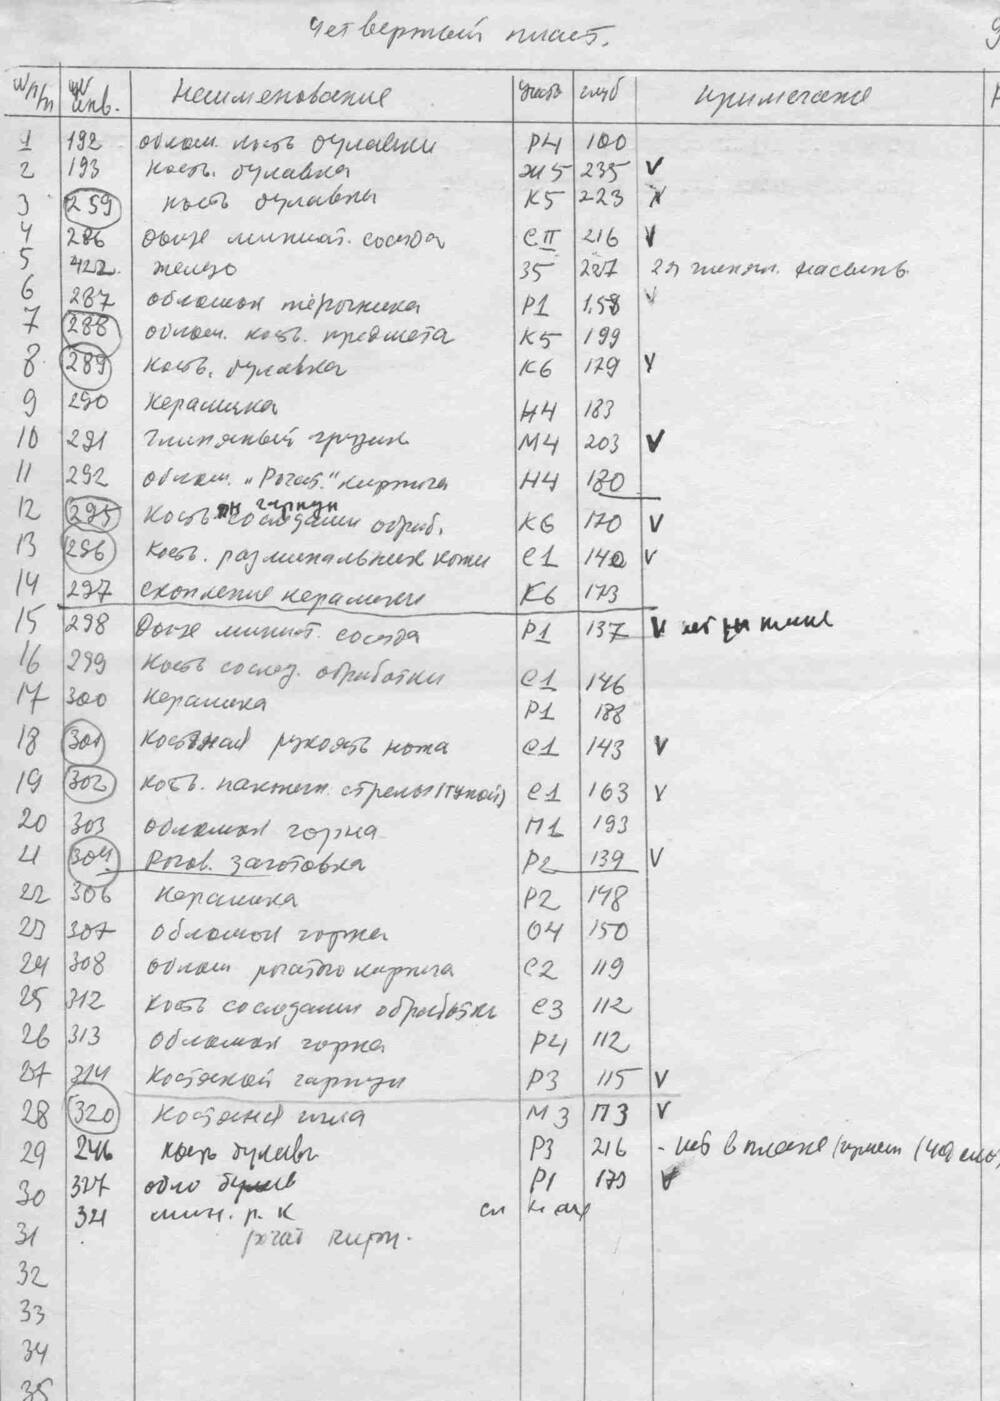 Четвертый пласт.
№ п/п № инв. Наименование Участ глуб примечание
1 192 облом. кость булавки Р4 100
2 193 кость. булавка Ж5 235 V
3 259 кость булавка К5 223 V
4 286 миниат. сосуда СII 216 V
5 422 железо 35 227
6 287 обломок Р1 158 V
7 288 облом. кость. предмета К5 199
8 289 Кость. булавка К6 179 V
9 290 Керамика Н4 183
10 291 Глиняный грузик М4 203 V
11 292 облом. "Рогат." кирпича Н4 180
12 295 Кость со следами обраб. гарпун К6 170 V
13 296 Кость. разминальник кожи С1 140 V
14 297 скопление керамики К6 173
15 298 миниат. сосуда Р1 137 V
16 299 Кость со след. обработки С1 146
17 300 Керамика Р1 188
18 301 Костяная рукоять ножа С1 143 V
19 302 Кость. наконечн. стрелы (тупой) С1 163 V
20 303 обломок горна П1 193
21 304 Рогов. заготовка Р2 139 V
22 306 Керамика Р2 148
23 307 обломок горна О4 150
24 308 облом рогатого кирпича С2 119
25 312 Кость со следами обработки С3 112
26 313 обломок горна Р4 112
27 314 Костяной гарпун Р3 115 V
28 320 Костяная игла М3 113 V
29 246 Р3 216 - нет в плане
30 327 Р1 179 V
321 мин. р. к
31 рогат кирп.
32
33
34
35